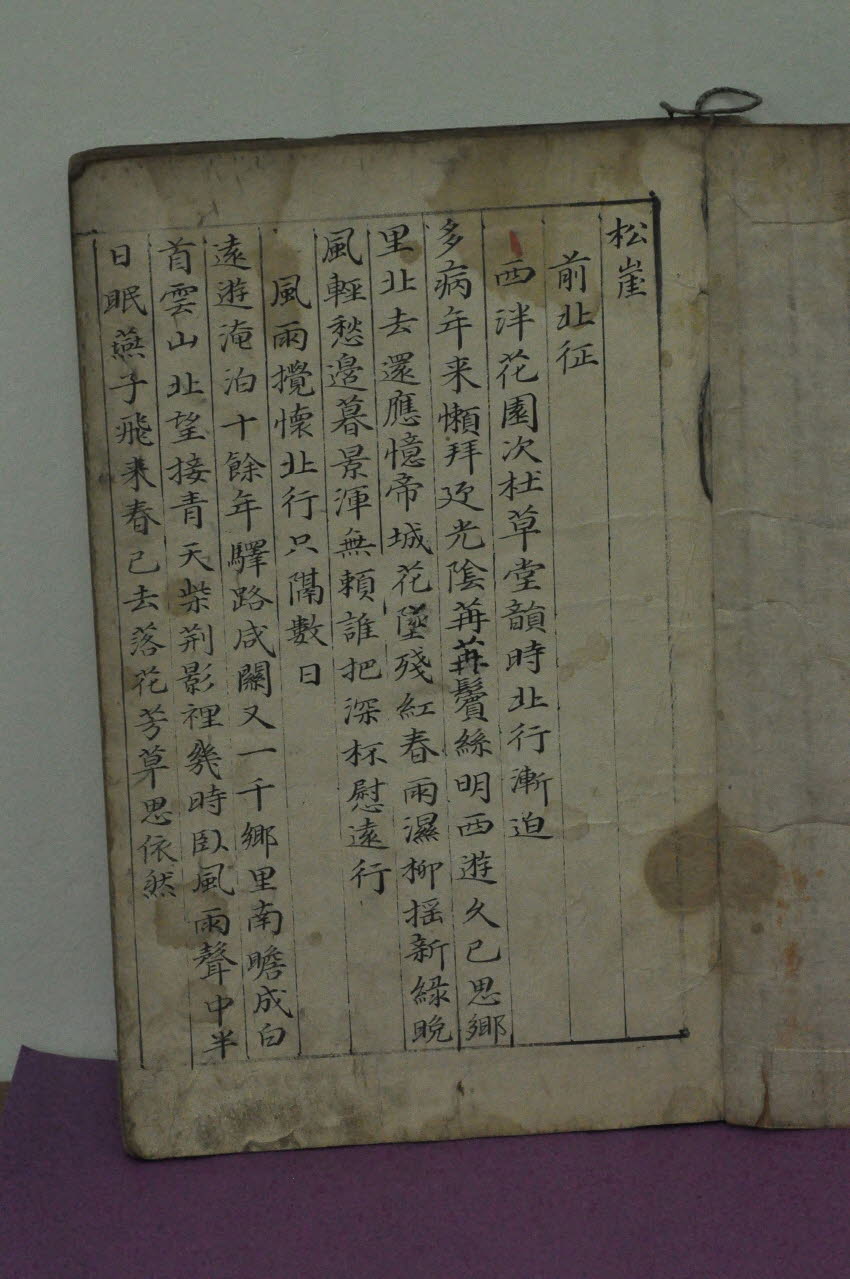 松崖
前北征
西泮花園次杜草堂韻時北行漸迫
多病年来懶拜迎光陰苒苒鬢絲明西遊久已思鄉
里北去還應憶帝城花墜殘紅春雨濕柳搖新綠晩
風輕愁邊暮景渾無賴誰把深杯慰遠行
風雨攪懷北行只隔數日
遠遊淹泊十餘年驛路咸關又一千鄉里南瞻成白
首雲山北望接青天柴荊影裡幾時臥風雨聲中半
日眠燕子飛来春已去落花芳草思依然